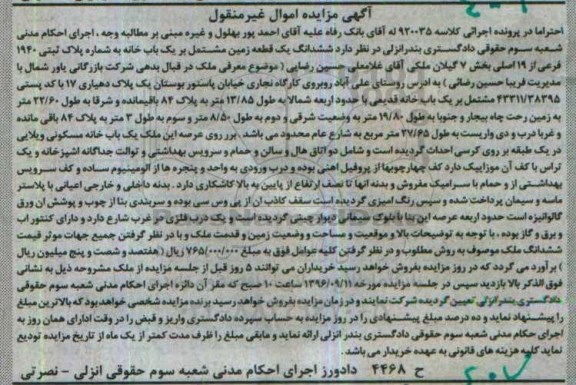 آگهی مزایده اموال غیرمنقول
احتراما در پرونده اجرائی کلاسه ۹۲۰۰۳۵ له آقای بانک رفاه علیه آقای احمد پور بهلول و غیره مبنی بر مطالبه وجه ، اجرای احکام مدنی
شعبه سوم حقوقی دادگستری بندرانزلی در نظر دارد ششدانگ یک قطعه زمین مشتمل بر یک باب خانه به شماره پلاک ثبتی ۱۹۴۰
فرعی از ۱۹ اصلی بخش ۷ گیلان ملکی آقای غلامعلی حسین رضایی ( موضوع معرفی ملک در قبال بدهی شرکت بازرگانی یاور شمال با
مدیریت فریبا حسین رضائی ) به ادرس روستای علی آباد روبروی کارگاه نجاری خیابان پاستور بوستان یک پلاک دهیاری ۱۷ با کد پستی
۴۳۳۱۱/۳۸۳۹۵ مشتمل بر یک باب خانه قدیمی با حدود اربعه شمالا به طول ۱۳/۸۵ متر به پلاک ۸۴ باقیمانده و شرقا به طول ۲۲/۶۰ متر
به زمین رحت چاه بیجار و جنوبا به طول ۱۹/۸۰ متر به وضعیت شرقی و دوم به طول ۸/۵۰ متر و سوم به طول ۳ متر به پلاک ۸۴ باقی مانده
و غربا درب و دی واریست به طول ۳۷/۶۵ متر مربع به شارع عام محدود می باشد . برروی عرصه این ملک یک باب خانه مسکونی ویلایی
در یک طبقه بر روی کرسی احداث گردیده است و شامل دو اتاق هال و سالن و حمام و سرویس بهداشتی و توالت جداگانه اشپزخانه و یک
تراس با کف آن موزاییک دارد کف چهارچوبها از پروفیل اهنی بوده و درب ورودی به واحد و پنجره ها از الومینیوم ساده و کف سرویس
بهداشتی از و حمام با سرامیک مفروش و بدنه آنها تا نصف ارتفاع از پایین به بالا کاشکاری دارد . بدنه داخلی و خارجی اعیانی با پلاستر
ماسه و سیمان پرداخت شده و سپس رنگ امیزی گردیده است سقف کاذب ان از پی وس سی بوده و سربندی بنا از چوب و پوشش ان ورق
گالوانیزه است حدود اربعه عرصه این بنا با بلوک سیمانی دیوار چینی گردیده است و یک درب فلزی در غرب شارع دارد و دارای کنتور اب
و برق و گاز بوده ، با توجه به توضیحات بالا و موقعیت و مساحت و وضعیت زمین و قدمت ملک و با در نظر گرفتن جمیع جهات موثر قیمت
ششدانگ ملک موصوف به روش مطلوب و در نظر گرفتن کلیه عوامل فوق به مبلغ ۷۶۵/۰۰۰/۰۰۰ ریال ( هفتصد و شصت و پنج میلیون ریال
) برآورد می گردد که در روز مزایده بفروش خواهد رسید خریداران می توانند ۵ روز قبل از جلسه مزایده از ملک مشروحه ذیل به نشانی
فوق الذکر بالا بازدید سپس در جلسه مزایده مورخه ۱۳۹۶/۰۹/۱۱ ساعت ۱۰ صبح که مقر آن دائره اجرای احکام مدنی شعبه سوم حقوقی
دادگستری بندرانزلی تعیین گردیده شرکت نمایند و در زمان مزایده بفروش خواهد رسید برنده مزایده شخصی خواهد بود که بالاترین مبلغ
را پیشنهاد نماید و ده درصد مبلغ پیشنهادی را در روز مزایده به حساب سپرده دادگستری واریز و قبض را در وقت اداری همان روز به
اجرای حکام مدنی شعبه سوم حقوقی دادگستری بندر انزلی ارائه نماید و مابقی مبلغ را ظرف مدت کمتر از یک ماه از تاریخ مزایده تودیع
نماید کلیه هزینه های قانونی به عهده خریدار می باشد .
ح ۴۴۶۸ دادورز اجرای احکام مدنی شعبه سوم حقوقی انزلی - نصرتی